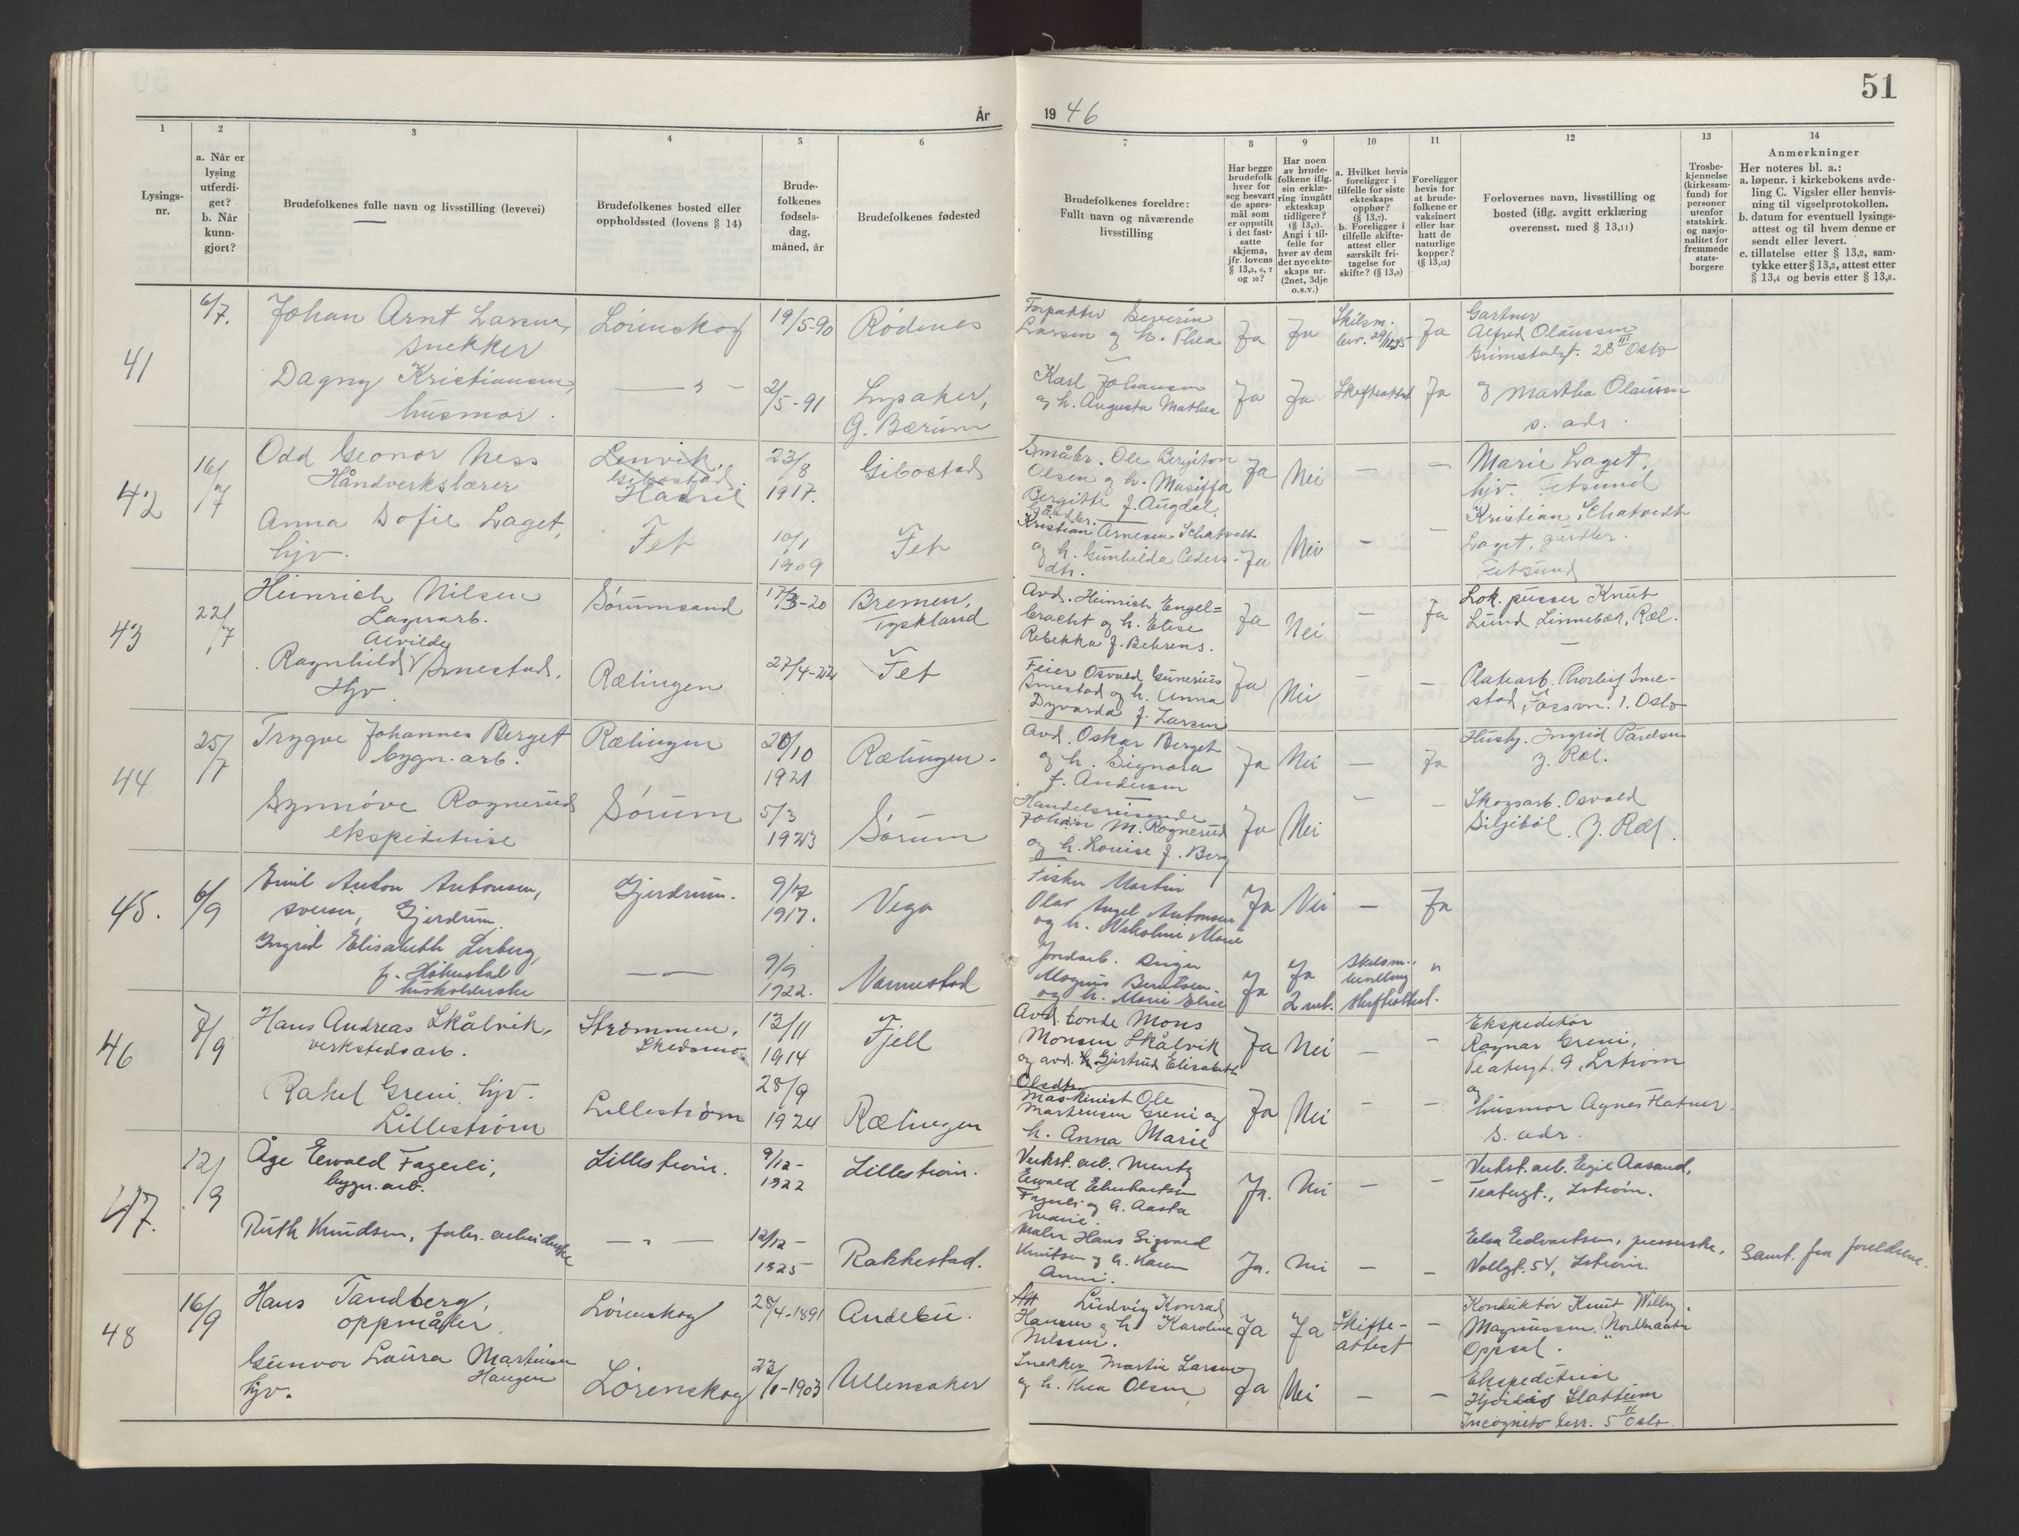 51
År
19 46
1
2
3
4
5
6
7
8
9
10
11
12
13
14
Lysings-
nr.
a. Når er
lysing
utferdi-
get?
b. Når
kunn-
gjort?
Brudefolkenes fulle navn og livsstilling (levevei)
Brudefolkenes bosted eller
oppholdssted (lovens § 14)
Brude-
folkenes
fødsels-
dag,
måned, år
Brudefolkenes fødested
Brudefolkenes foreldre:
Fullt navn og nåværende
livsstilling
Har begge
brudefolk
hver for
seg besvart
de spørs-
mål som
er oppstilt
i det fast-
satte
skjema,
jfr. lovens
§ 13,5, 6, 7
og 10?
Har noen
av brude-
folkene iflg.
sin erklæ-
ring inngått
ekteskap
tidligere?
(§ 13,5).
Angi i til-
felle for
hver av dem
det nye ekte-
skaps nr.
(2net, 3dje
o.s.v.)
a. Hvilket bevis
foreligger i
tilfelle for siste
ekteskaps
opphør?
(§ 13,7).
b. Foreligger i
tilfelle skifte-
attest eller
særskilt fri-
tagelse for
skifte? (§ 13,9)
Foreligger
bevis for
at brude-
folkene er
vaksinert
eller har
hatt de
naturlige
kopper?
(§ 13,12)
Forlovernes navn, livsstilling og
bosted (iflg. avgitt erklæring
overensst. med § 13,11)
Trosbe-
kjennelse
(kirkesam-
fund) for
personer
utenfor
statskirk.
og nasjo-
nalitet for
fremmede
stats-
borgere
Anmerkninger
Her noteres bl. a.:
a. løpenr. i kirkebokens avde-
ling C. Vigsler eller henvis-
ning til vigselprotokollen.
b. datum for eventuell lysings-
attest og til hvem denne er
sendt eller levert.
c. tillatelse etter § 13,2, sam-
tykke etter § 13,3, attest etter
§ 13,4 og bevis etter § 13,8.
41
6/7.
Johan Arnt Larsen,
snekker
Lørenskog
19/5-90
Rødenes
Forpakter Severin
Larsen og h. Thea
Ja
Ja
Skilsm.
bev. 29/12 45
Ja
Gartner
Alfred Olaussen
Grimstadgt. 28 III Oslo
Dagny Kristiansen,
husmor.
— " —
2/5-91
Lysaker,
Ø. Bærum
Karl Johansen
og h. Augusta Mathea
Ja
Ja
Skifteattest
Ja
og Martha Olaussen
s. adr.
42
16/7
Odd Geonor Ness
Håndverkslærer
Lenvik,
Gibostad
23/8
1917.
Gibostad
Småbr. Ole Bergiton
Olsen og h. Masiffa
Bergitte f. Augdal,
Ja
Nei
—
—
Marie Laget,
hjv. Fetsund
Anna Sofie Laget,
hjv.
Fet
10/1
1909
Fet
Gårdbr.
Kristian Arnesen Schatvedt
og h. Gunhilda Peders-
dtr.
Ja
Nei
—
—
Kristian Schatvedt
Laget, gårdbr.
Fetsund
43
22/7
Heinrich Nilsen
Lagerarb.
Sørumsand
17/3-20
Bremen,
Tyskland
Avd. Heinrich Engel=
bracht og h. Elise
Rebekka f. Behrens.
Ja
Nei
—
Ja
Lok. pusser Knut
Lund, Linnebær, Ræl.
Alvilde
Ragnhild Smestad,
Hjv.
Rælingen
27/4-22
Fet
Feier Osvald Gunerius
Smestad og h. Anna
Dyvarda f. Larsen
Ja
Nei
—
—
Platearb. Thorleif Sme-
stad, Fossvn. 1. Oslo
44
25/7
Trygve Johannes Berget
bygn. arb.
Rælingen
20/10
1921
Rælingen.
Avd. Oskar Berget
og h. Signora
f. Andersen
Ja
Nei
—
Ja
Husby. Ingrid Paulsen
Y. Ræl.
Synnøve Rognerud
ekspeditrise
Sørum
5/3
1923
Sørum
Handelsreisende
Johan M. Rognerud
og h. Louise f. Berg
Ja
Nei
—
—
Skogsarb. Osvald
Siljebøl. Y. Ræl.
45.
6/9
Emil Anton Antonsen,
sveiser, Gjerdrum.
Gjerdrum.
9/12
1917.
Vega
Fisker Martin
Olav Angel Antonsen
og h. Nikoline Marie
Ja
Nei
—
Ja
Ingrid Elisabeth Lerberg,
f.
husholderske
— —
9/9
1922.
Jordarb. Inger
Magnus Berntsen
og h. Marie Elise
Ja
Ja
2 net.
Skilsm.-
bevilling
skifteattest.
"
46
7/9
Hans Andreas Skålvik,
verkstedsarb.
Strømmen,
Skedsmo
13/11
1914
Fjell
Avd. bonde Mons
Monsen Skålvik
og avd. h. Gjertrud Elisabeth
Olsdtr.
Ja
Nei
—
—
Ekspeditør
Ragnar Greni,
Teatergt. 9, Lstrøm
Rakel Greni, hjv.
Lillestrøm
Lillestrøm
28/9
1924
Rælingen
Maskinist Ole
Martinsen Greni og
h. Anna Marie
Ja
Nei
—
—
og
husmor Agnes Flatner.
s. adr.
47.
12/9
Åge Edvald Fagerli,
bygn. arb.
Lillestrøm.
9/12-
1922
Lillestrøm.
Verkst. arb. Mentz
Edvald Eberhartsen
Fagerli og h. Aasta
Marie.
Ja.
Nei
—
—
Verkst. arb. Egil Aasand,
Teatergt., Lstrøm.
Ruth Knudsen, fabr. arbeiderske
— " —
12/12-
1925
Rakkestad.
Maler Hans Sigvald
Knutsen og h. Karen
Anni.
Ja.
Nei
—
—
Elsa Edvartsen, presserske,
Vollgt. 54, Lstrøm.
Samt. fra foreldrene.
48
16/9
Hans Tandberg,
oppmåler
Lørenskog
28/4-1891
Andebu.
Ludvig Konrad
Hansen og h. Karoline
Nilssen.
Ja
Ja
Skifte-
attest
—
Konduktør Knut Willy
Magnussen,
Oppsal.
Gunvor Laura Martinsen
Haugen
hjv.
Lørenskog
23/11-1903
Ullensaker
Snekker Martin Larsen
og h. Thea Olsen
Ja
Nei
—
—
Ekspeditrise
Hjørdis Slattum
Incognito terr. 5 II Oslo.